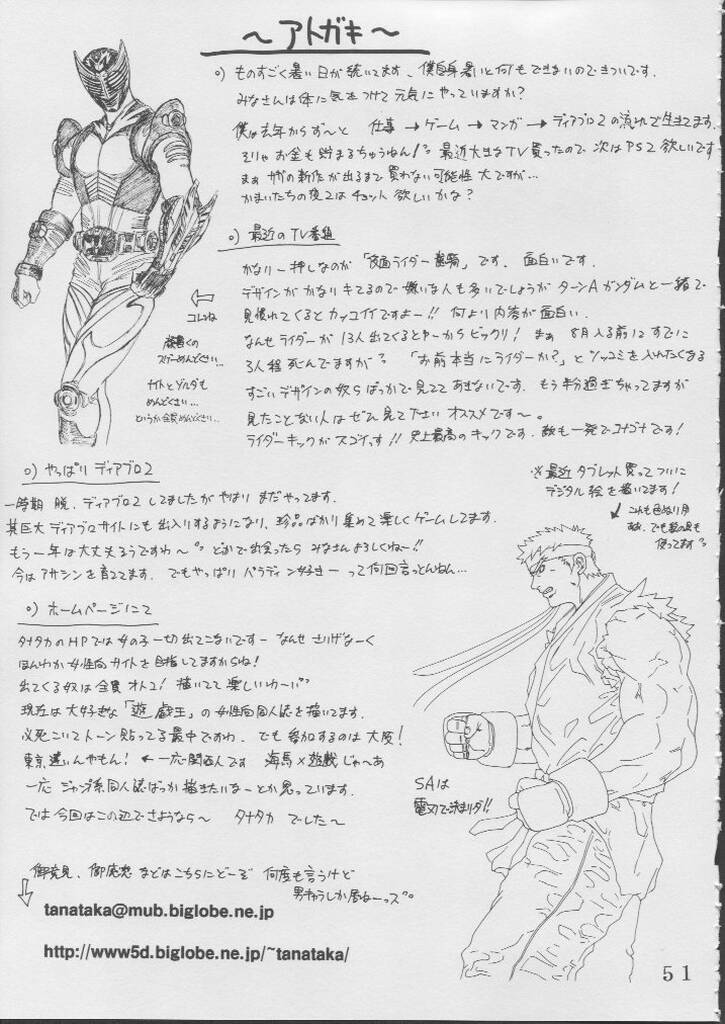 ～アトガキ～
○) ものすごく暑い日が続いてます、僕自身暑いと何もできないのできついです。
みなさんは体に気をつけて元気にやっていますか?
僕は去年からず～と 仕事→ゲーム→マンガ→ディアブロ2の流れで生きてます。
そりゃお金も貯まるちゅうねん!° 最近大きなTV買ったので次はPS2欲しいです
まぁ サガの新作が出るまで買わない可能性大ですが…
かまいたちの夜2はチョット欲しいかな?
○) 最近のTV番組
かなり一押しなのが「仮面ライダー龍騎」です。面白いです。
デザインがかなりキてるので嫌いな人も多いでしょうがターンAガンダムと一緒で
見慣れてくるとカッコイイですよー!! 何より内容が面白い。
なんせライダーが13人出てくるとゆーからビックリ! まぁ 8月入る前にすでに
3人程死んでますが° 「お前本当にライダーか?」とツッコミを入れたくなる
すごいデザインの奴らばっかで見ててあきないです。もう半分過ぎちゃってますが
見たことない人はぜひ見て下さいオススメです～。
ライダーキックがスゴイっす!! 史上最高のキックです。敵も一発でコナゴナです!
⇦
コレはね
スゲーめんどくさい…
ナイトとゾルダも
めんどくさい…
というか全員めんどくさい…
○) やっぱりディアブロ2
一時期 脱、ディアブロ2してましたがやはりまだやってます。
某巨大ディアブロサイトにも出入りするようになり、珍品ばかり集めて楽しくゲームしてます。
もう一年は大丈夫そうですわ～° どこかで出会ったらみなさんよろしくねー!!
今はアサシンを育ててます。でもやっぱりパラディン好きーって何回言っとんねん…
※最近タブレット買ってついに
デジタル絵を描いてます!
○) ホームページにて
タナタカのHPでは女の子一切出てこないですー なんせさりげなーく
ほんわか女性向サイトを目指してますからね!
出てくる奴は全員オトコ! 描いてて楽しいわー!°
現在は大好きな「遊戯王」の女性向同人誌を描いてます。
必死こいてトーン貼ってる最中ですわ。でも参加するのは大阪!
東京遠いんやもん! ←一応関西人です 海馬×遊戯じゃ～あ
一応ジャンプ系同人誌ばっか描きたいなーとか思っています。
では今回はこの辺でさようなら～ タナタカでした～
SAは
電刃で決まりダ!!
御意見、御感想などはこちらにどーぞ 何度も言うけど
男キャラしか居ねーっス°
tanataka@mub.biglobe.ne.jp
http://www5d.biglobe.ne.jp/~tanataka/
51